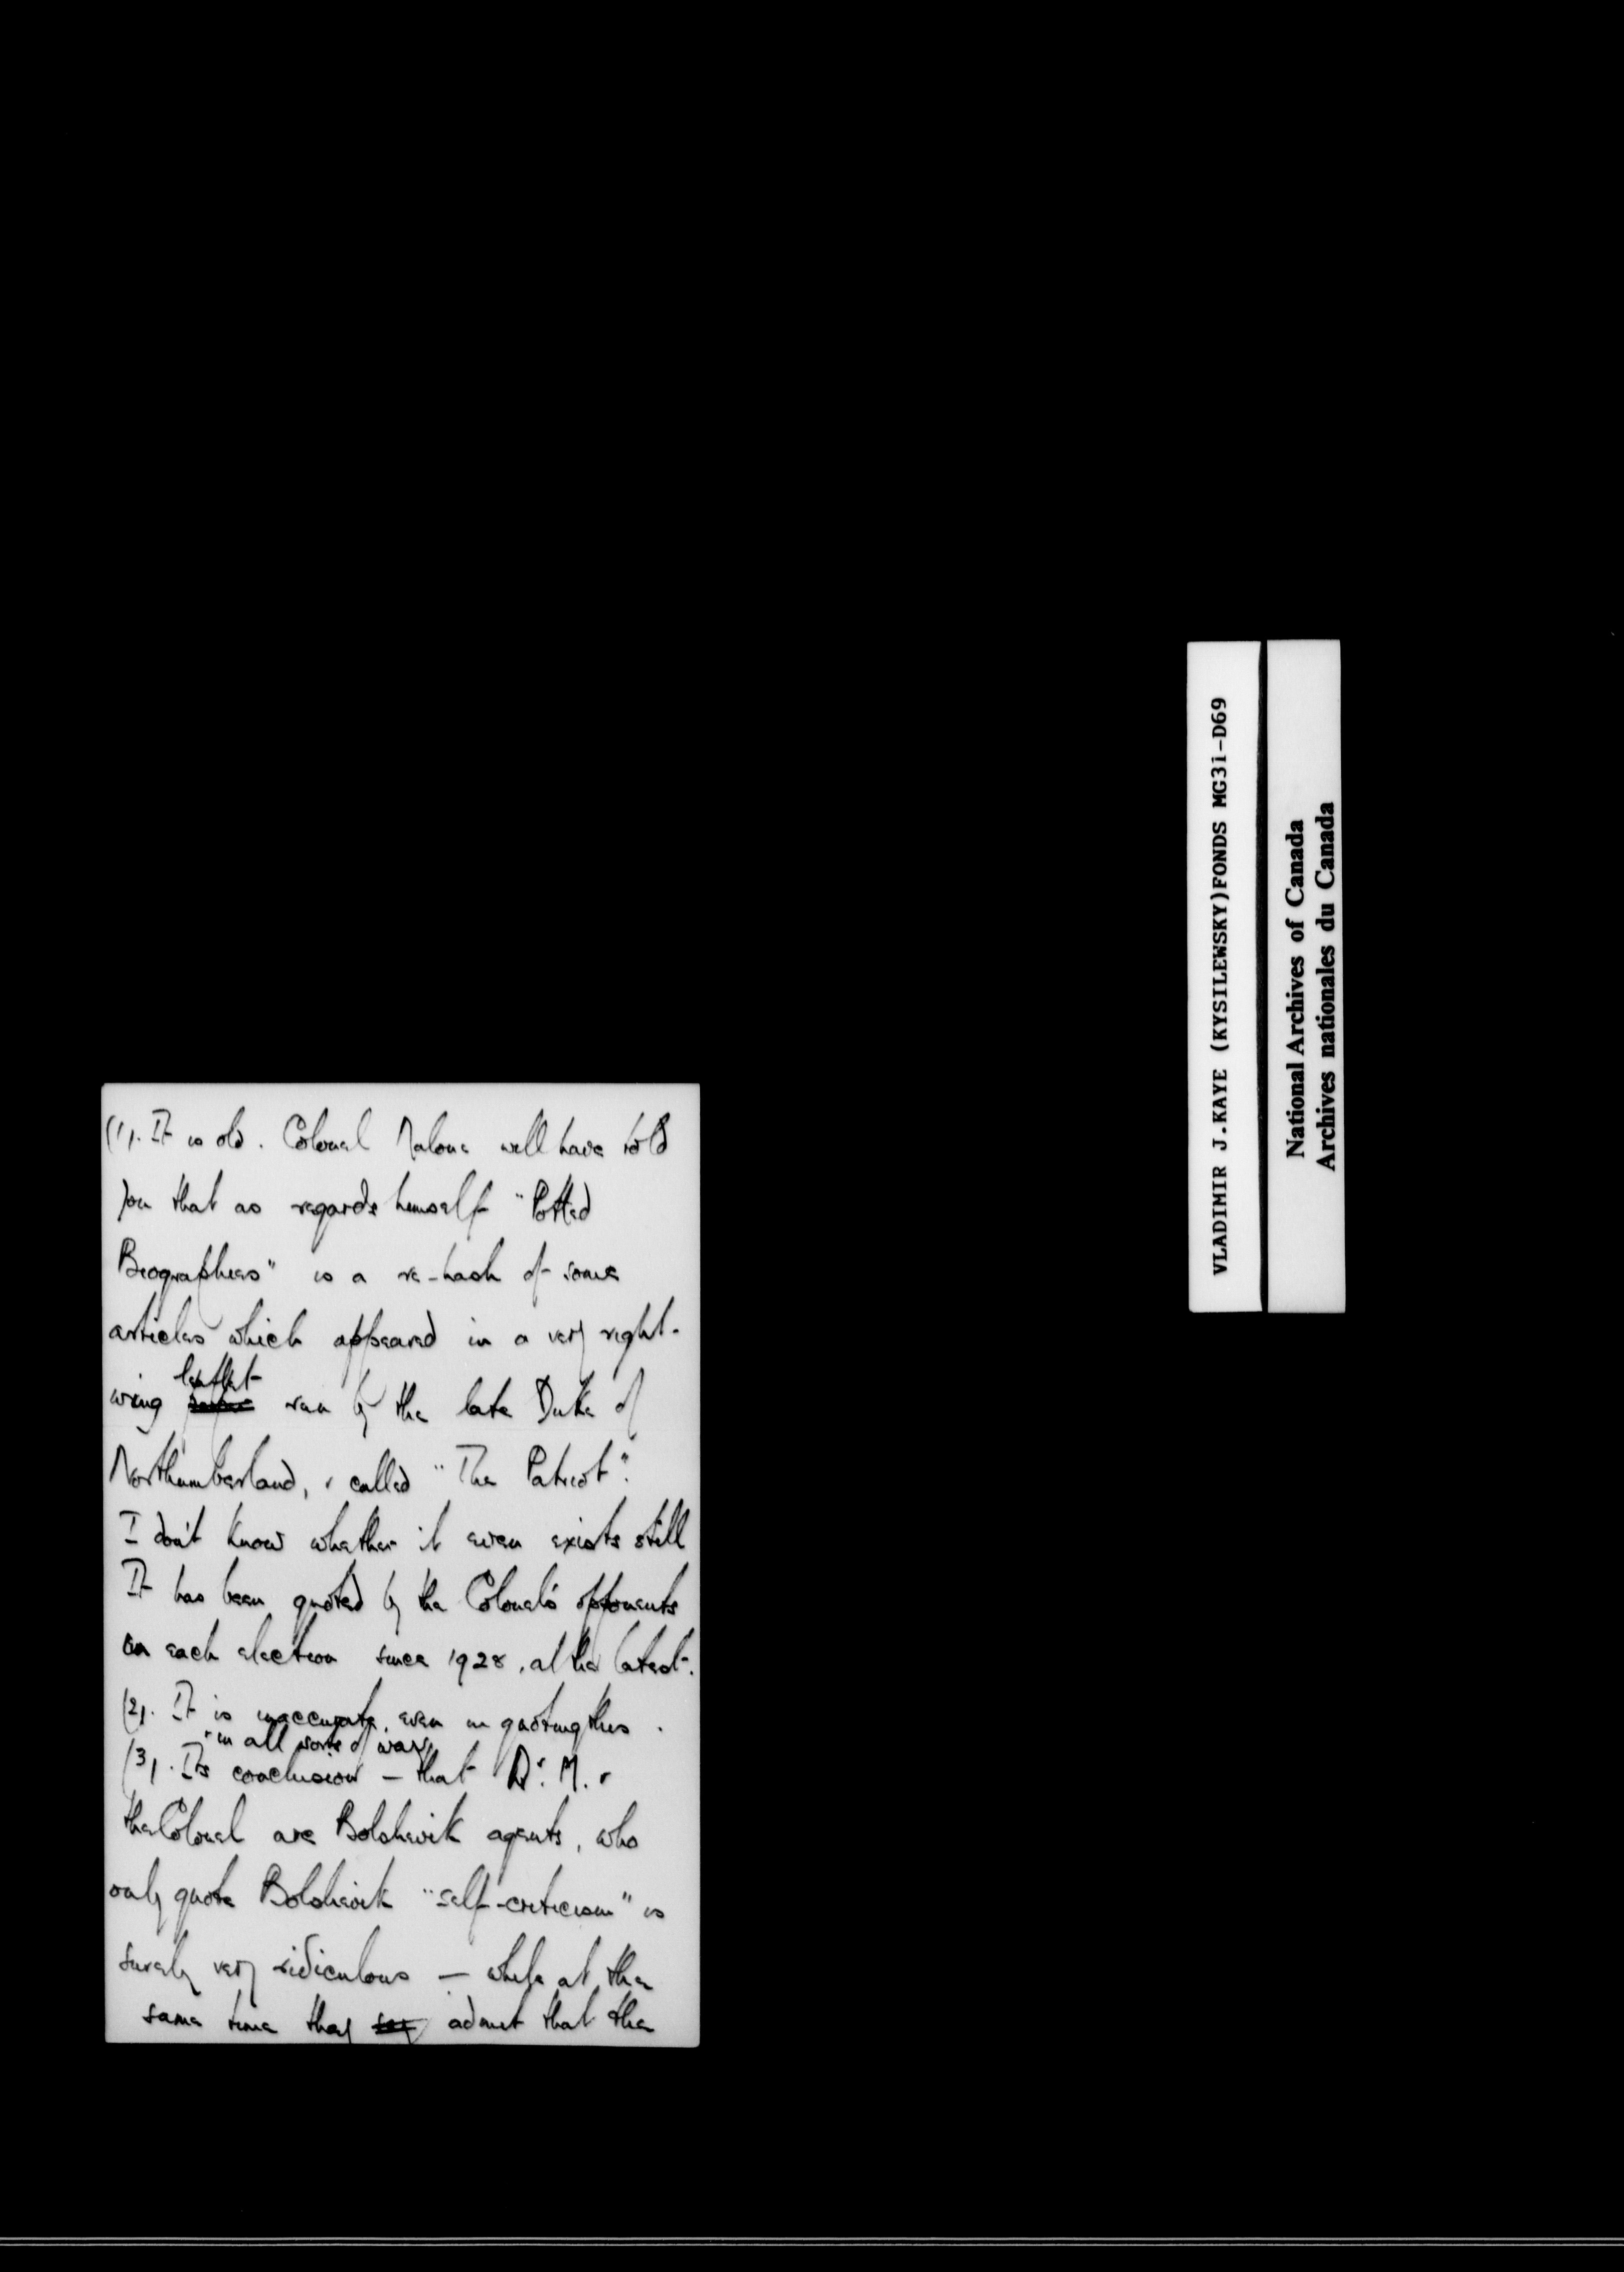 (1). It is old. Colonel Malone will have told
you that as regards himself "Potted
Biographies" is a re-hash of some
articles which appeared in a very right-
wing leaflet ran by the late Duke of
Northumberland, & called "The Patriot".
I don't know whether it even exists still
It has been quoted by the Colonel's opponents
on each election since 1928, at the latest.
(2). It is inaccurate, even in quoting this.
& in all sorts of ways
(3). Its conclusion — that Dr. M. &
the Colonel are Bolshevik agents, who
only quote Bolshevik "self-criticism" is
surely very ridiculous — while at the
same time they say admit that the
VLADIMIR J.KAYE (KYSILEWSKY)FONDS MG31-D69
National Archives of Canada
Archives nationales du Canada